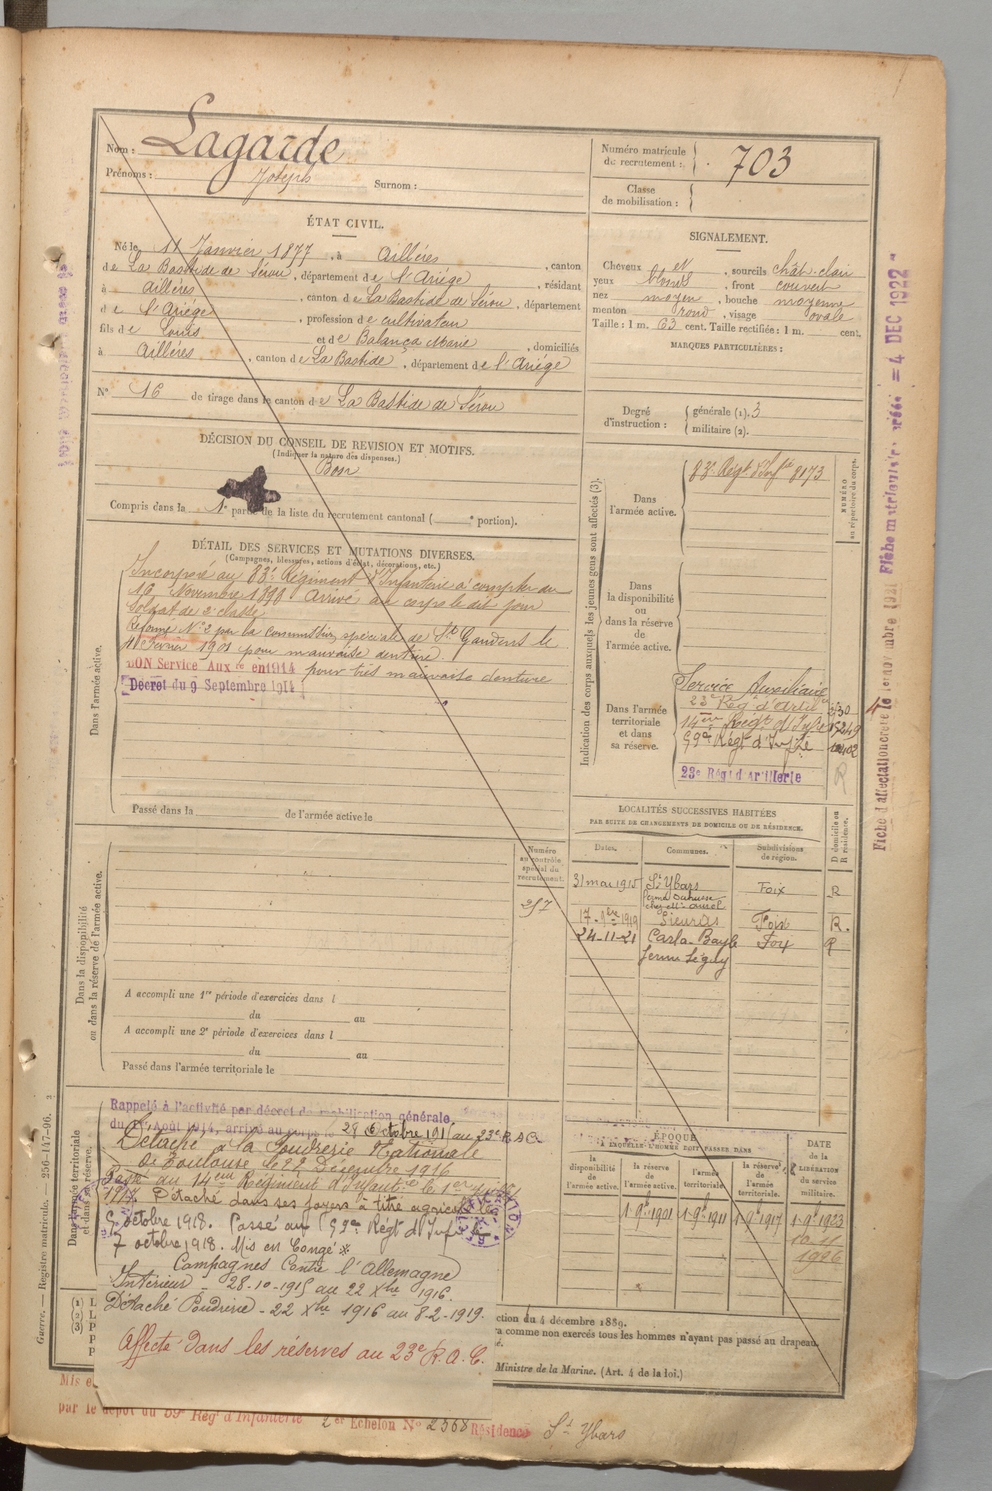 Nom : Lagarde
Prénoms : Joseph Surnom :
Numéro matricule de recrutement : 703
Classe de mobilisation :
ÉTAT CIVIL.
Né le 11 Janvier 1877, à Aillères, canton
de La Bastide de Sérou, département de l'Ariége, résidant
à Aillères, canton de La Bastide de Sérou, département
de l'Ariége, profession de cultivateur
fils de Louis et de Balança Marie, domiciliés
à Aillères, canton de La Bastide, département de l'Ariége
N° 16 de tirage dans le canton de La Bastide de Sérou
SIGNALEMENT.
Cheveux et sourcils chât-clair
yeux bleus, front couvert
nez moyen, bouche moyenne
menton rond, visage ovale
Taille : 1 m. 63 cent. Taille rectifiée : 1 m. cent.
MARQUES PARTICULIÈRES :
Degré d'instruction : générale (1). 3
militaire (2).
DÉCISION DU CONSEIL DE REVISION ET MOTIFS.
(Indiquer la nature des dispenses.)
Bon
Compris dans la 1e partie de la liste du recrutement cantonal ( e portion).
DÉTAIL DES SERVICES ET MUTATIONS DIVERSES.
(Campagnes, blessures, actions d'éclat, décorations, etc.)
Dans l'armée active.
Incorporé au 83e Régiment d'Infanterie à compter du
Novembre 1898. Arrivé au corps le dit jour
Soldat de 2e classe
Réformé N° 2 par la commission spéciale de St Gaudens le
Février 1901 pour mauvaise denture.
BON Service Auxre en 1914 pour très mauvaise denture
Décret du 9 Septembre 1914
Passé dans la de l'armée active le
Indication des corps auxquels les jeunes gens sont affectés (3).
NUMÉRO au répertoire du corps.
Dans l'armée active.
83e Regt d'Infie 8173
Dans la disponibilité ou dans la réserve de l'armée active.
Dans l'armée territoriale et dans sa réserve.
Service Auxiliaire
23e Rég d'Artil
14ème Regt d'Infie
59e Régt d'Infie
23e Régt d'Artillerie
R
LOCALITÉS SUCCESSIVES HABITÉES
PAR SUITE DE CHANGEMENTS DE DOMICILE OU DE RÉSIDENCE.
Dates. Communes. Subdivisions de région. D domicile ou R résidence.
31 mai 1915 St Ybars Foix R
17-1bre 1919 Sieuras Foix R.
24-11-21 Carla-Bayle Foix R
ferme Séguy
Numéro au contrôle spécial du recrutement.
257
Dans la disponibilité ou dans la réserve de l'armée active.
A accompli une 1re période d'exercices dans l
du au
A accompli une 2e période d'exercices dans l
du au
Passé dans l'armée territoriale le
Dans l'armée territoriale et dans sa réserve.
Rappelé à l'activité par décret de mobilisation générale
du 1er Août 1914, arrivé au corps le 28 Octobre 191 au 23e R.A.C.
Détaché à la Poudrerie Nationale
de Toulouse le 22 Décembre 1916
Passé au 14ème Régiment d'Infantie le 1er
1917. Détaché dans ses foyers à titre agricole le
5 octobre 1918. Passé au 59e Régt d'Infie le
7 octobre 1918. Mis en Congé
Campagnes Contre l'Allemagne
Intérieur - 28-10-1915 au 22 Xbre 1916.
Détaché Poudrerie - 22 Xbre 1916 au 8-2-1919.
Affecté dans les réserves au 23e R.A.C.
ÉPOQUE
À LAQUELLE L'HOMME DOIT PASSER DANS
la disponibilité de l'armée active. la réserve de l'armée active. l'armée territoriale. la réserve de l'armée territoriale. DATE de la LIBÉRATION du service militaire.
1-9-1901 1-9-1911 1-9-1917 1-9-1923
10-11
1926
ction du 4 décembre 1889.
ra comme non exercés tous les hommes n'ayant pas passé au drapeau.
Ministre de la Marine. (Art. 4 de la loi.)
Mis e
par le dépôt du 59e Rég d'Infanterie 2er Echelon N° 2368 Résidence St Ybars
Guerre. — Registre matricule. — 256-147-96.
Fiche d'affectation créée le 1er novembre 192 Fiche matriculaire créée = 4 DEC 1922